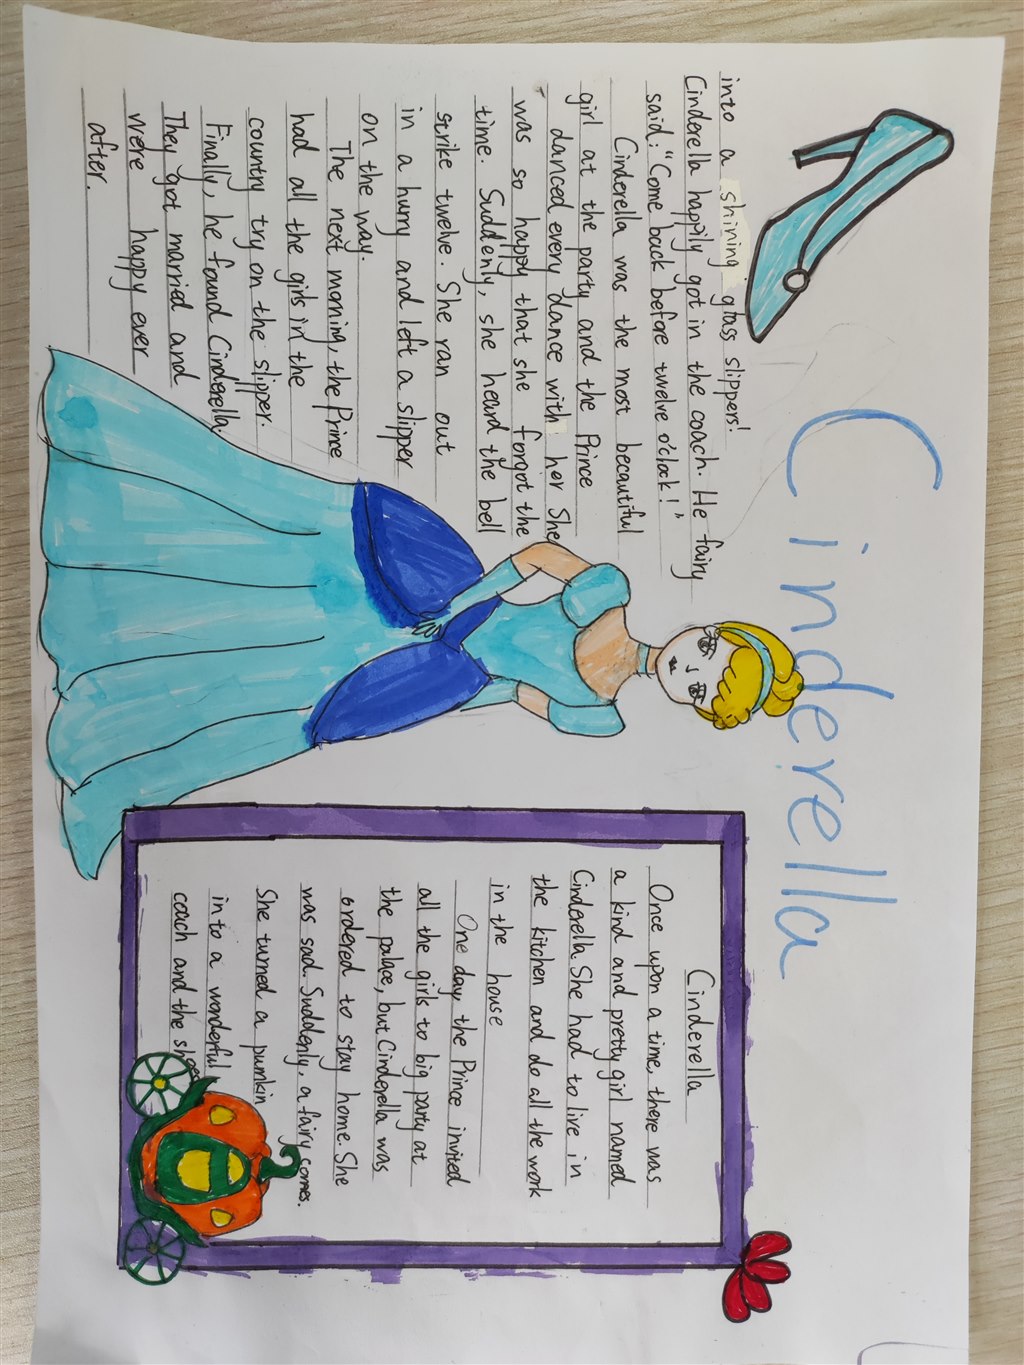 Cinderella
Cinderella
Once upon a time, there was
a kind and pretty girl named
Cinderella She had to live in
the kitchen and do all the work
in the house
One day, the Prince invited
all the girls to big party at
the palace, but Cinderella was
ordered to stay home. She
was sad. Suddenly, a fairy comes.
She turned a pumkin
into a wonderful
coach and the shoes
into a shining glass slippers!
Cinderella happily got in the coach. He fairy
said: "Come back before twelve o'clock!"
Cinderella was the most becautiful
girl at the party and the Prince
danced every dance with her She
was so happy that she forgot the
time. Suddenly, she heard the bell
strike twelve. She ran out
in a hurry and left a slipper
on the way.
The next morning, the Prince
had all the girls in the
country try on the slipper.
Finally, he found Cinderella.
They got married and
were happy ever
after.